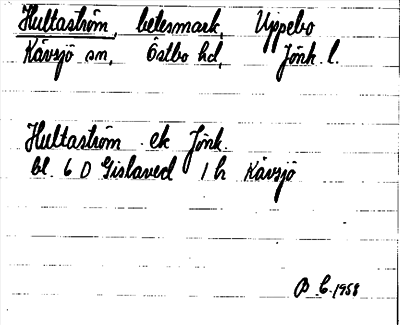 Hultaström, betesmark, Uppebo
Kävsjö sn, Östbo hd, Jönk. l.
Hultaström ek Jönk.
bl. 6 D Gislaved 1 h Kävsjö
B E. 1958